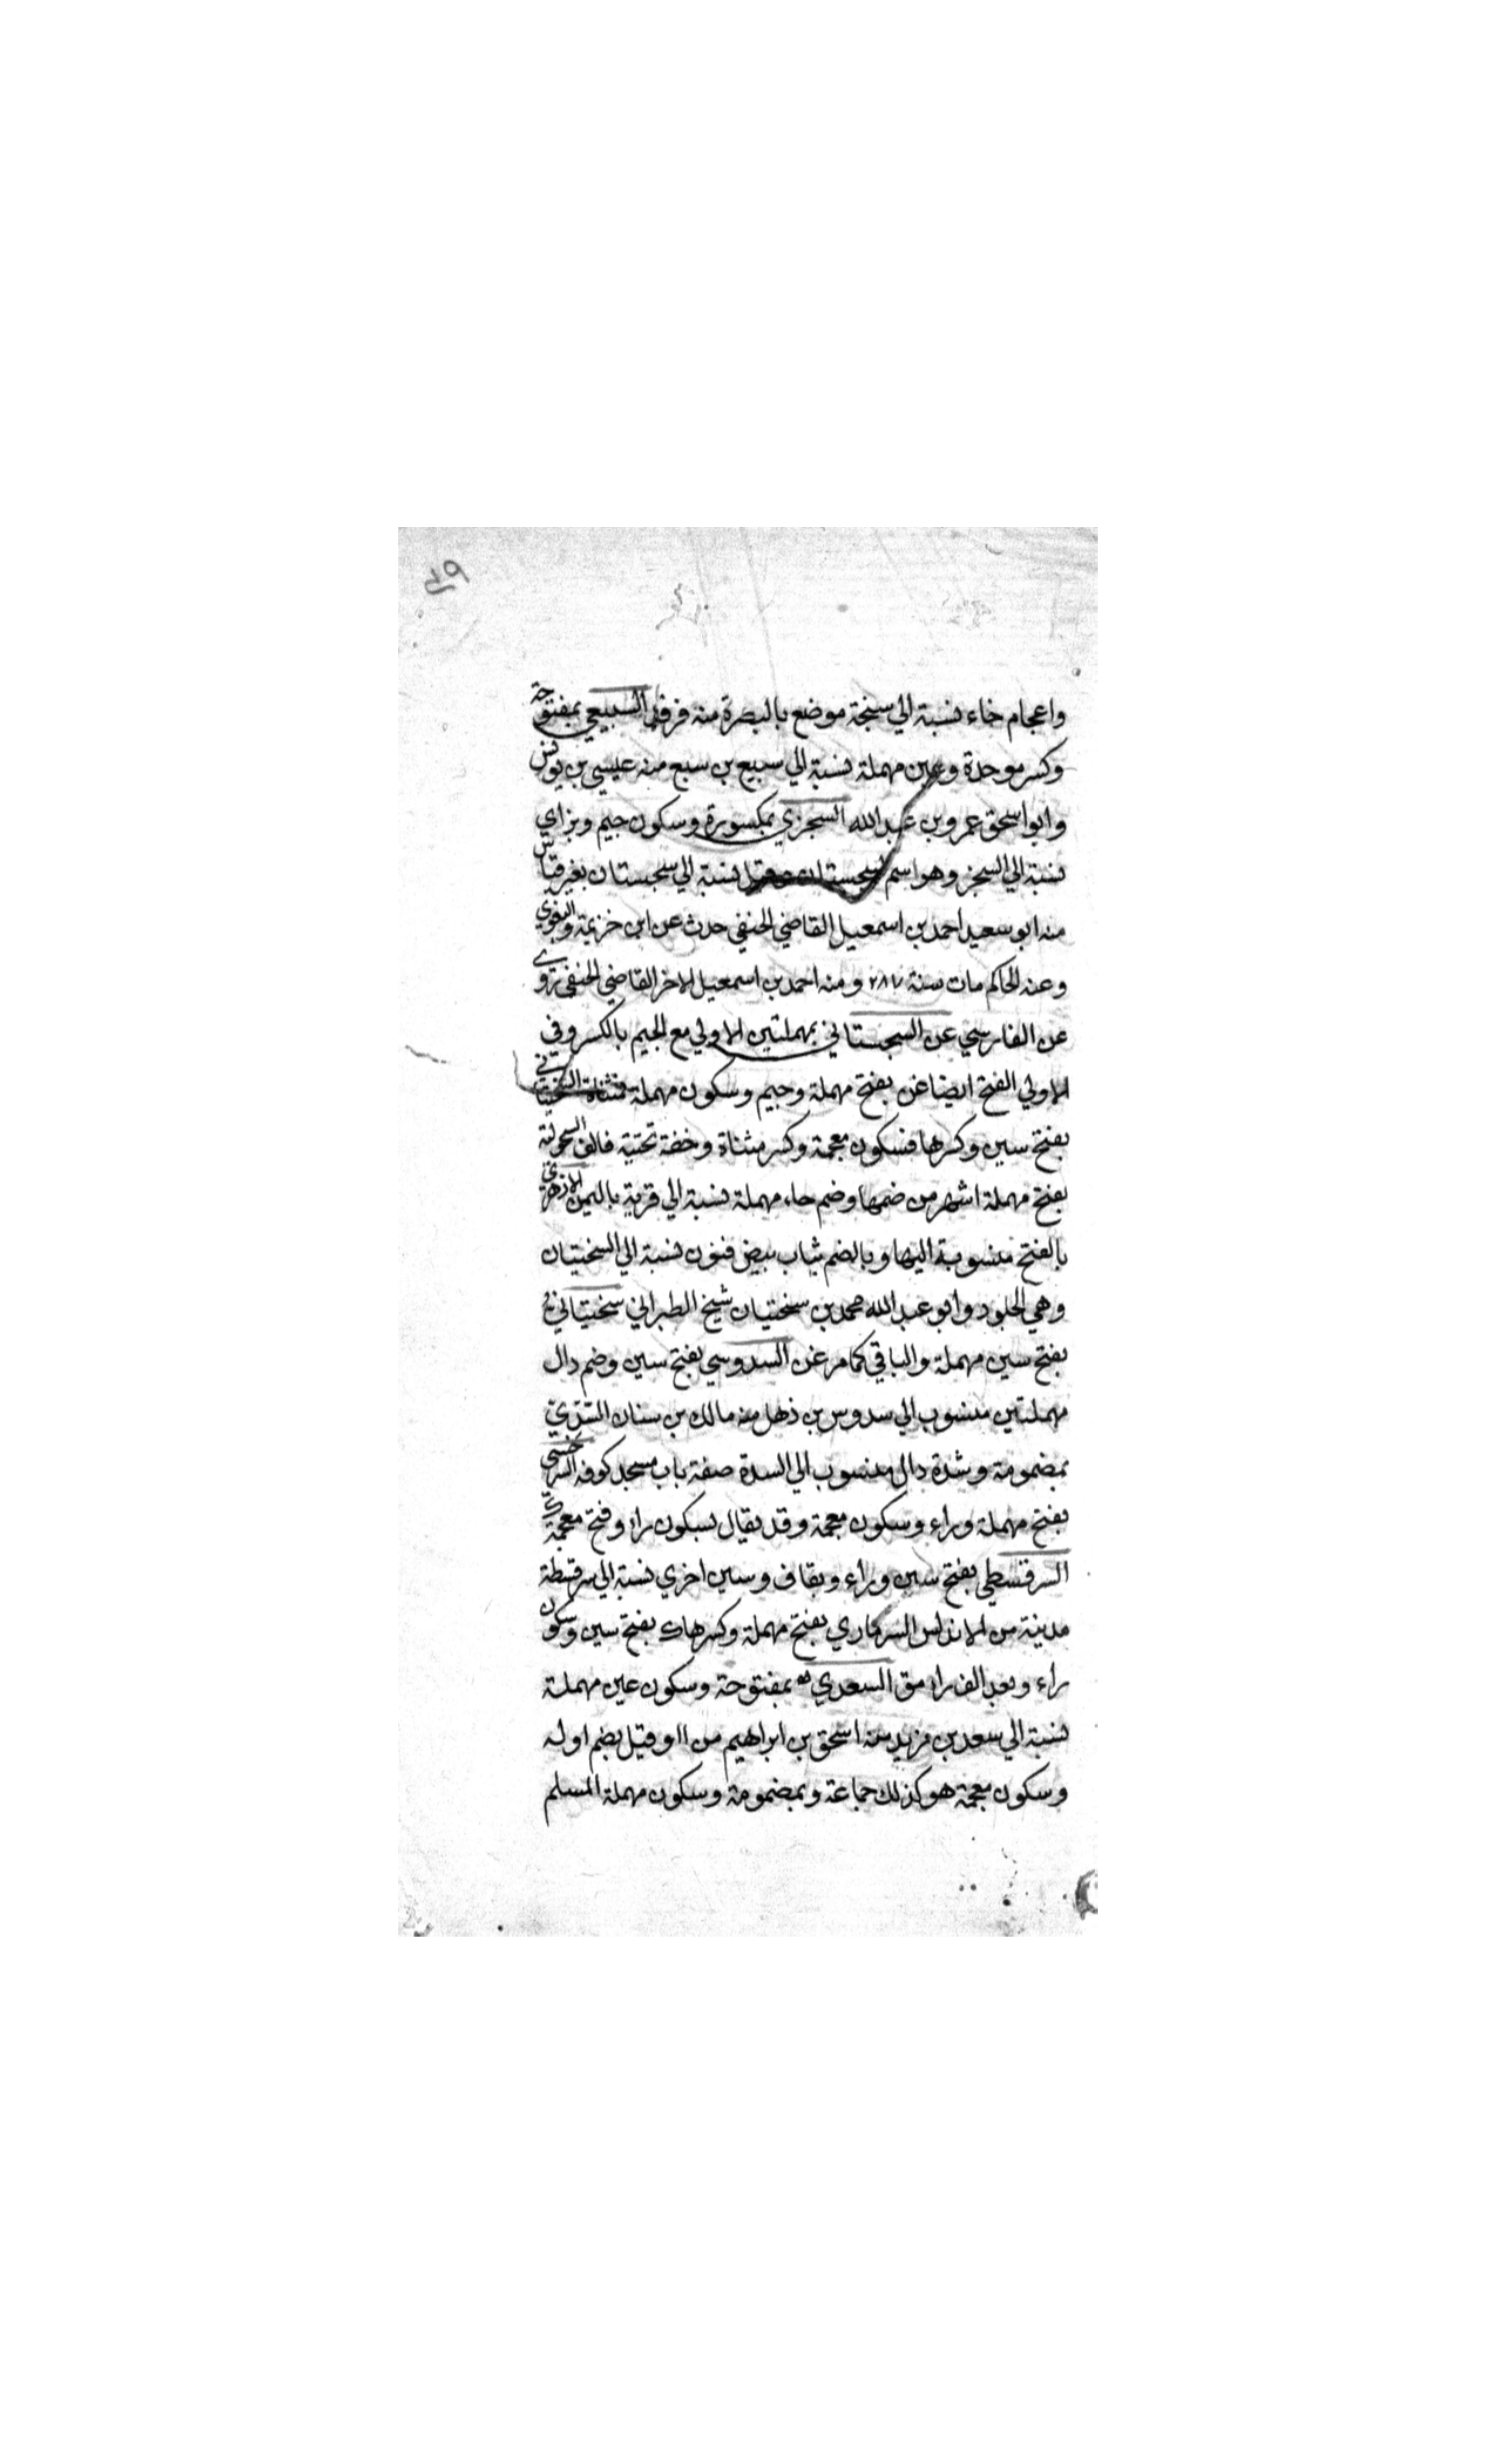 ٧٩
واعجام خاء نسبة الي سبخة موضع بالبصرة منه فرقد السبيعي بمفتوحة
وكسر موحدة وعين مهملة نسبة الي سبيع بن سبع منه عيسي بن يونس
وابو اسحق عمرو بن عبد الله السجزي بمكسورة وسكون جيم وبزاي
نسبة الي السجز وهو اسم لسجستان وقيل نسبة الي سجستان بغير قياس
منه ابو سعيد احمد بن اسمعيل القاضي الحنفي حدث عن ابن خزيمة والبغوي
وعنه الحاكم مات سنة ٢٨٧ ومنه احمد بن اسمعيل الاخر القاضي الحنفي روي
عن الفارسي عن السجستاني بمهملتين الاولي مع الجيم بالكسر وفي
الاولي الفتح ايضا غن بفتح مهملة وجيم وسكون مهملة فمثناة السختياني
بفتح سين وكسرها فسكون معجمة وكسر مثناة وخفة تحتية فالف السحولية
بفتح مهملة اشهر من ضمها وضم حاء مهملة نسبة الي قرية باليمن الازهري
بالفتح منسوبة اليها وبالضم ثياب بيض فنون نسبة الي السختيان
وهي الجلود وابو عبد الله محمد بن سختيان شيخ الطبراني سختياني
بفتح سين مهملة والباقي كما مر غن السدوسي بفتح سين وضم دال
مهملتين منسوب الي سدوس بن ذهل منه مالك بن سنان السدي
بمضمومة وشدة دال منسوب الي السدة صفة باب مسجد كوفه السرخسي
بفتح مهملة وراء وسكون معجمة وقد يقال بسكون راء وفتح معجمة ك
السرقسطي بفتح سين وراء وبقاف وسين اخري نسبة الي سرقسطة
مدينة من الاندلس السرماري بفتح مهملة وكسرها ك بفتح سين وسكون
راء وبعد الف را مق السعدي بمفتوحة وسكون عين مهملة
نسبة الي سعد بن مزيد منه اسحق بن ابراهيم من ااو وقيل بضم اوله
وسكون معجمة هو كذلك جماعة وبمضمومة وسكون مهملة المسلم